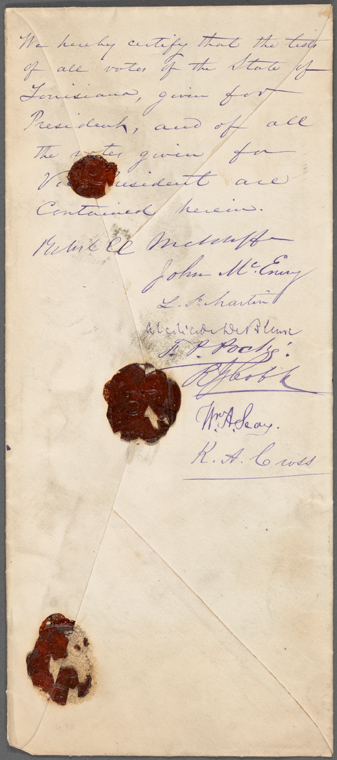 We hereby certify that the lists
of all votes of the State of
Louisiana, given for
President, and of all
the votes given for
Vice President are
Contained herein.
John McEnery
L. St. Martin
F. P. Poché.
R G Cobb
Wm. A. Seay.
K. A. Cross